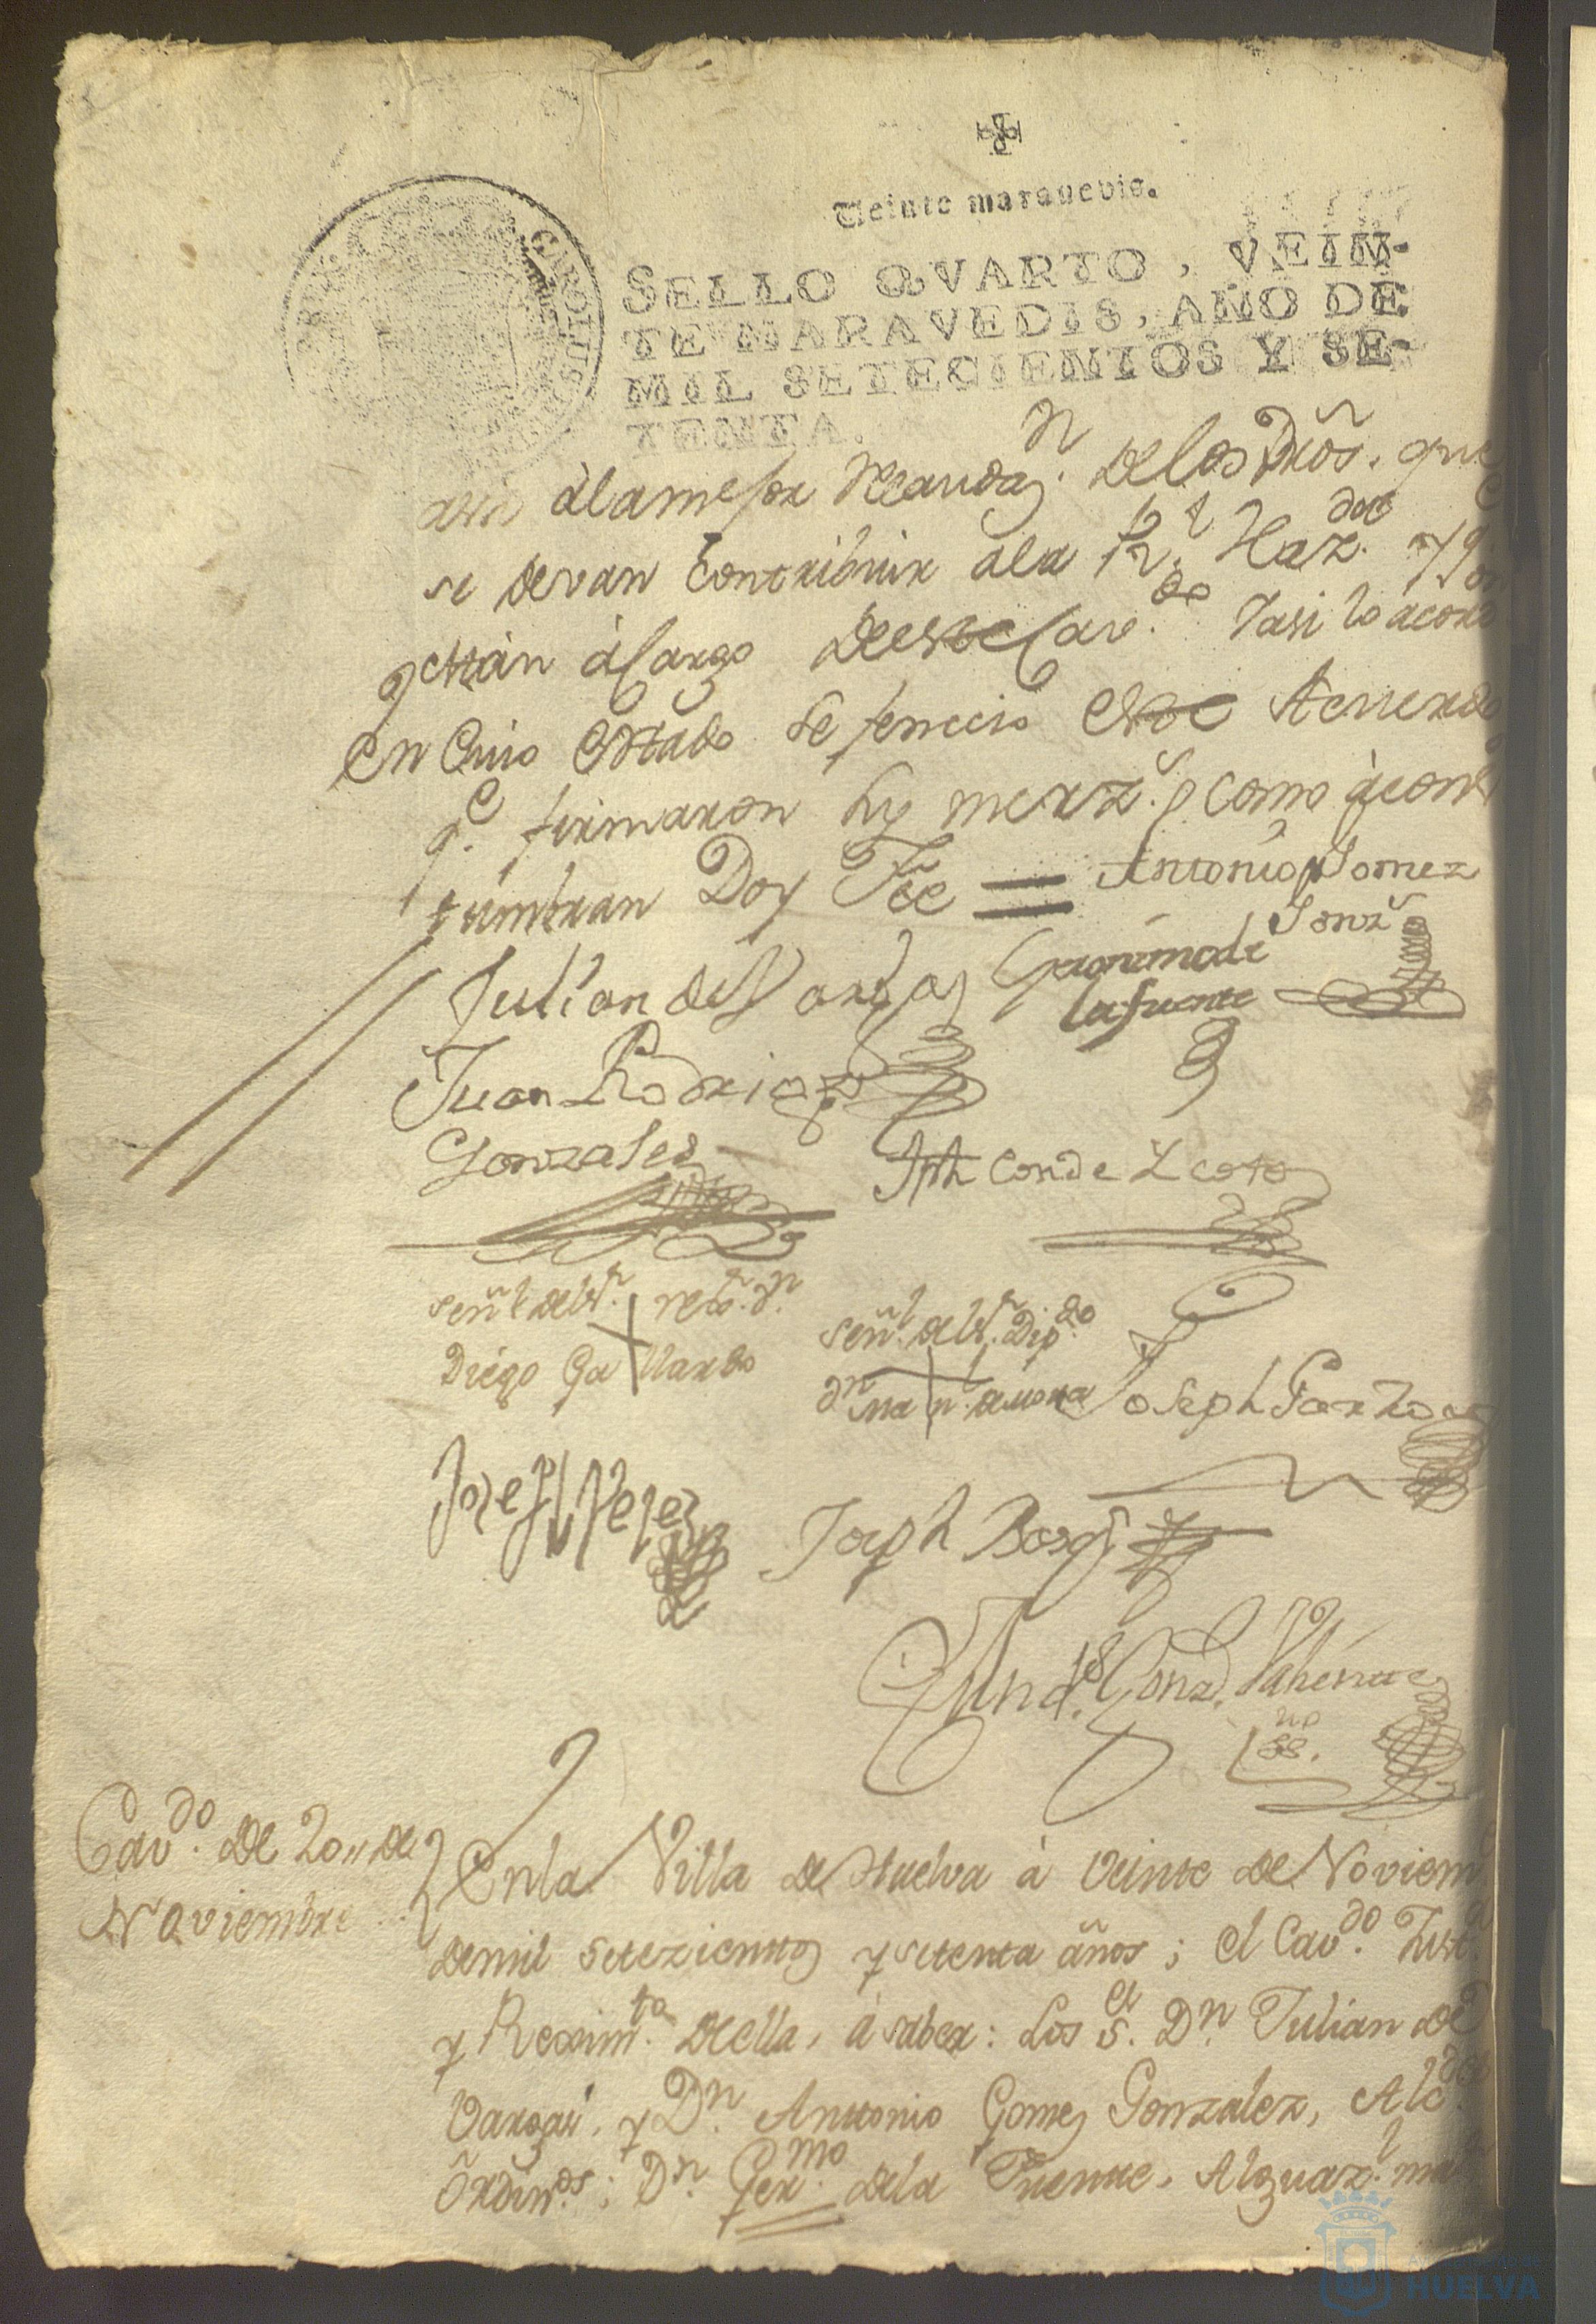 Veinte maravedis.
SELLO QVARTO, VEIN-
TE MARAVEDIS, AÑO DE
MIL SETECIENTOS Y SE-
TENTA.
CAROLUS
àlamejor Recaudaz.n Delos Dros. que
se devan Contribuir ala R.l Haz.da y q.e
estàn àCargo Deeste Cav.do Yasi lo acord
en Cuio Estado se fenecio este Acuerdo
q.e firmaron Sus merz.s como àcos
tumbran Doy Fee =
Antonio Gomez
Gonz.s
Julian de Vargas
Geronimo de
la fuente
Juan Rodriguez
Gonzales
Jph Conde Y Coto
señl del s.r rexr. Dn.
Diego Gallardo
señl. del s.r Dip.do
Joseph
Josef Perez
Joseph
Gonz.
Cav.do De 20,, de
Noviembre
Enla Villa de Huelva à Veinte de Noviem
demil setezientos y setenta años; el Cav.do Just.a
y Reximto. Deella, à saber: Los S.es Dn. Julian de
Vargas, y Dn. Anttonio Gomez Gonzalez, Alc.des
Ordin.os; Dn. Germo. dela Fuente, Alguaz.l ma
HUELVA